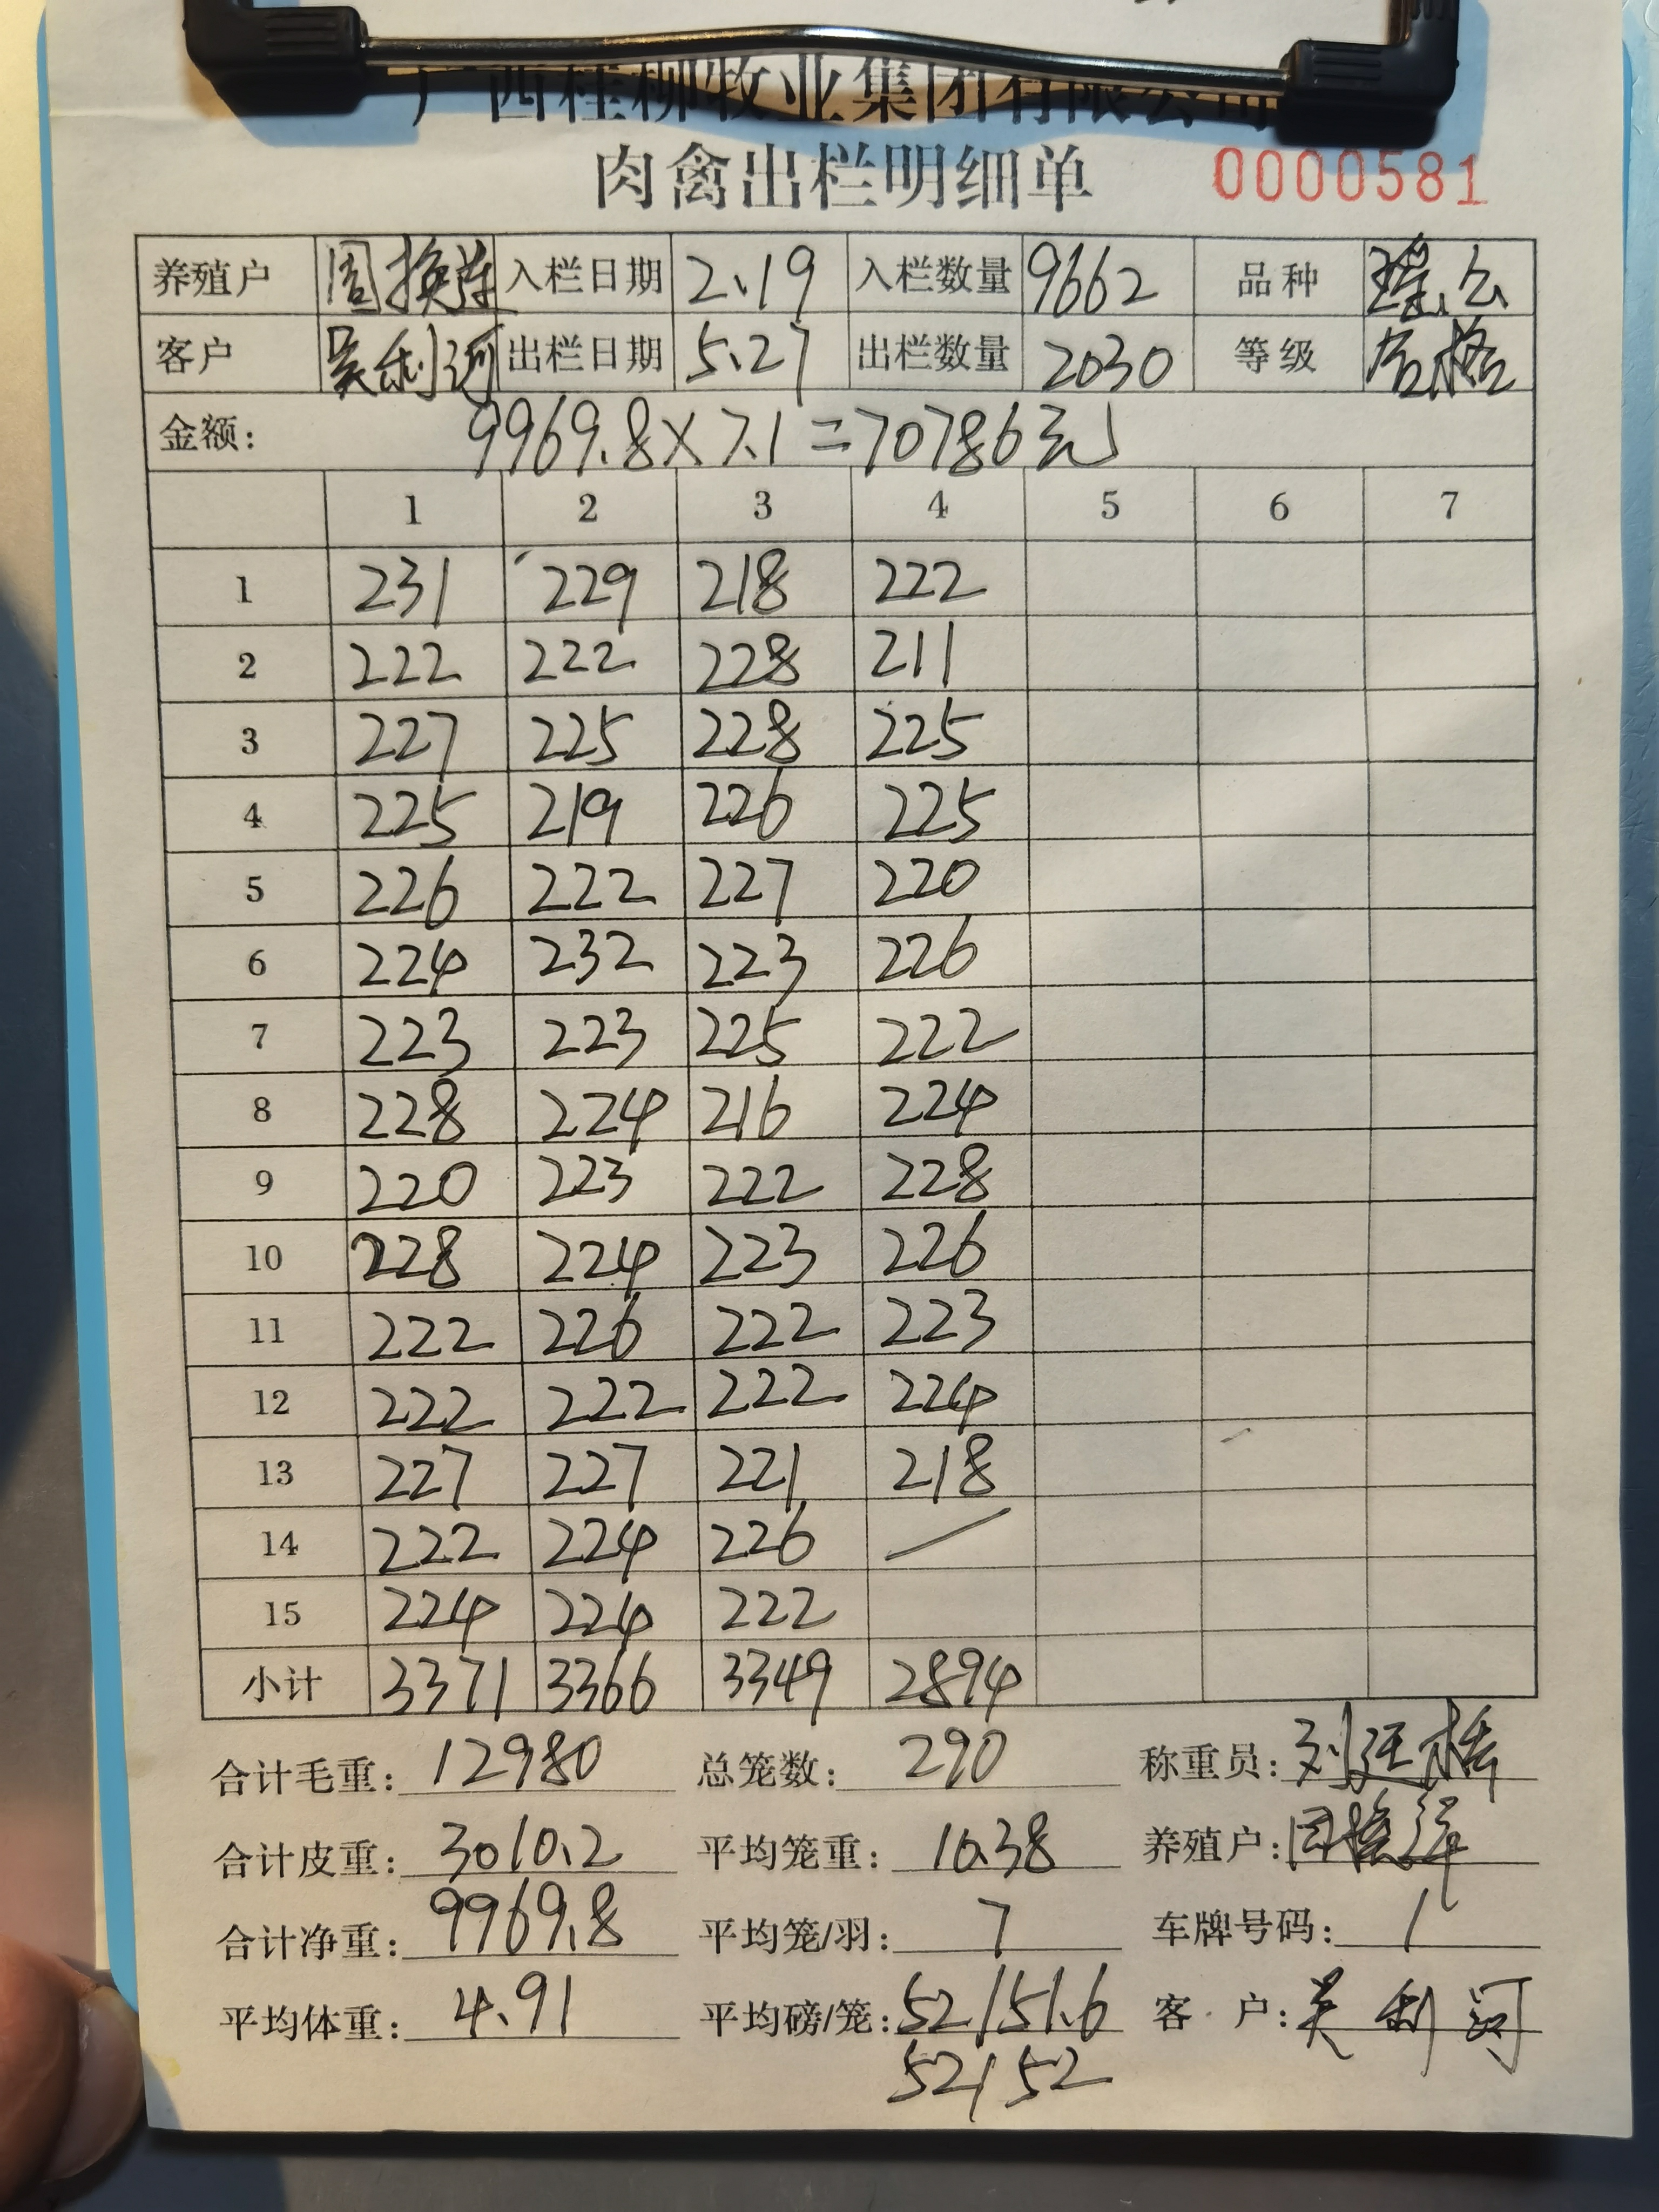 广西桂柳牧业集团有限公司
肉禽出栏明细单 0000581
养殖户 周换莲 入栏日期 2.19 入栏数量 9662 品种 瑶公
客户 吴利河 出栏日期 5.27 出栏数量 2030 等级 合格
金额: 9969.8×7.1=70786元
1 2 3 4 5 6 7
1 231 229 218 222
2 222 222 228 211
3 227 225 228 225
4 225 219 226 225
5 226 222 227 220
6 224 232 223 226
7 223 223 225 222
8 228 224 216 224
9 220 223 222 228
10 228 224 223 226
11 222 226 222 223
12 222 222 222 224
13 227 227 221 218
14 222 224 226 /
15 224 224 222
小计 3371 3366 3349 2894
合计毛重: 12980 总笼数: 290 称重员:
合计皮重: 3010.2 平均笼重: 10.38 养殖户: 周换莲
合计净重: 9969.8 平均笼/羽: 7 车牌号码: 1
平均体重: 4.91 平均磅/笼: 52/51.6 客户: 吴利河
52/52